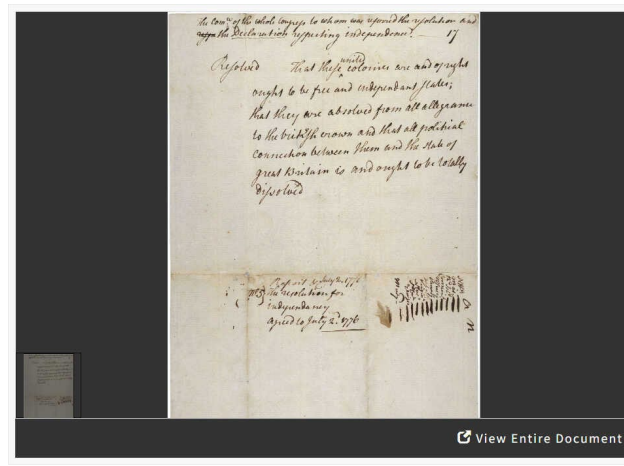 The Com.ee of the whole Congress to whom was referred the resolution and
the Declaration respecting independence. 17
Resolved That these united colonies are and of right
ought to be free and independant states;
that they are absolved from all allegiance
to the british crown and that all political
connection between them and the state of
great Britain is and ought to be totally
dissolved
Report July 2. 1776
The resolution for
independancy
agreed to July 2.d 1776
View Entire Document